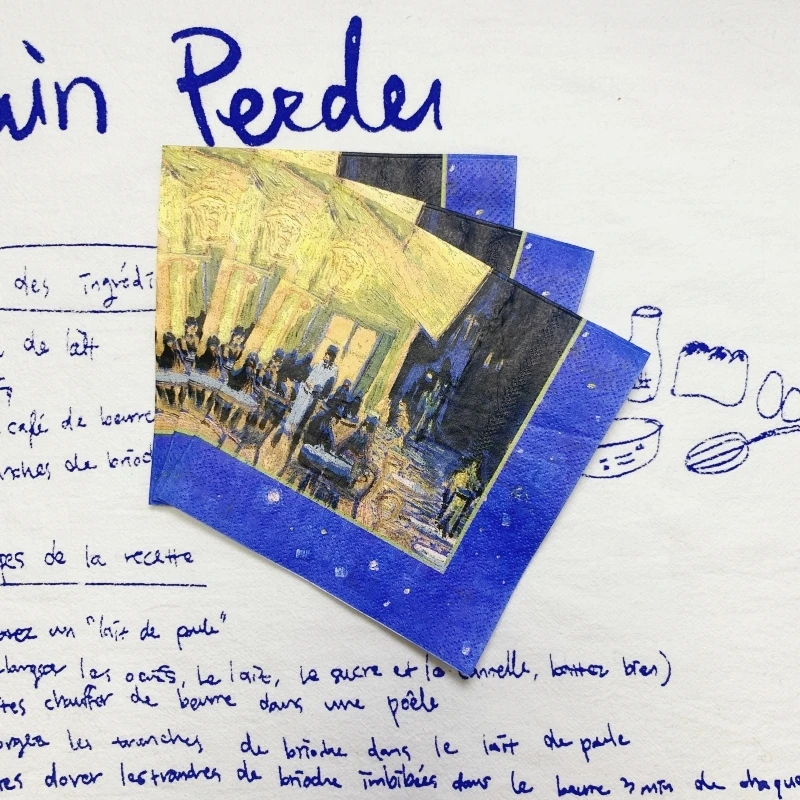 ain Perdu
des ingrédi
de lait
café de beurre
nches de brioc
pes de la recette
un "lait de poule"
langer les oeufs, le lait, le sucre et la cannelle, battez bien)
tes chauffer de beurre dans une poêle
orgez les tranches de brioche dans le lait de poule
res dorer les tranches de brioche imbibées dans le beurre 3 min de chaque